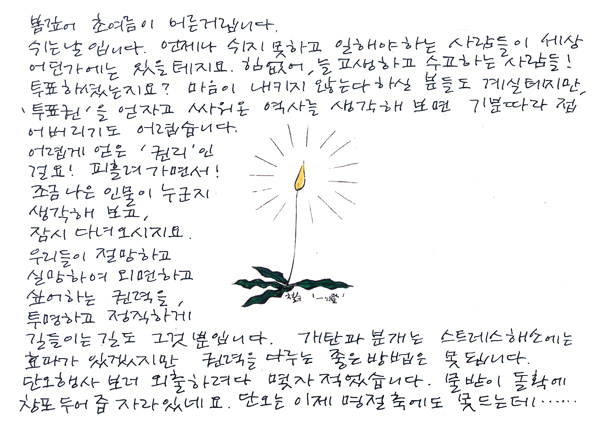 봄깊어 초여름이 어른거립니다.
쉬는날입니다. 언제나 쉬지 못하고 일해야하는 사람들이 세상
어딘가에는 있을테지요. 힘없어, 늘 고생하고 수고하는 사람들!
투표하셨는지요? 마음이 내키지 않는다 하실 분들도 계실테지만,
'투표권'을 얻자고 싸워온 역사를 생각해 보면 기분따라 접
어버리기도 어렵습니다.
어렵게 얻은 '권리'인
걸요! 피흘려가면서!
조금 나은 인물이 누군지
생각해 보고,
잠시 다녀오시지요.
우리들이 절망하고
실망하여 외면하고
싶어하는 권력을,
투명하고 정직하게
길들이는길도 그것 뿐입니다. 개탄과 분개는 스트레스해소에는
효과가 있겠지만 권력을 다루는 좋은방법은 못됩니다.
단오행사 보러 외출하려다 몇자 적었습니다. 물밭이 돌확에
창포 두어 줌 자라있네요. 단오는 이제 명절축에도 못드는데……